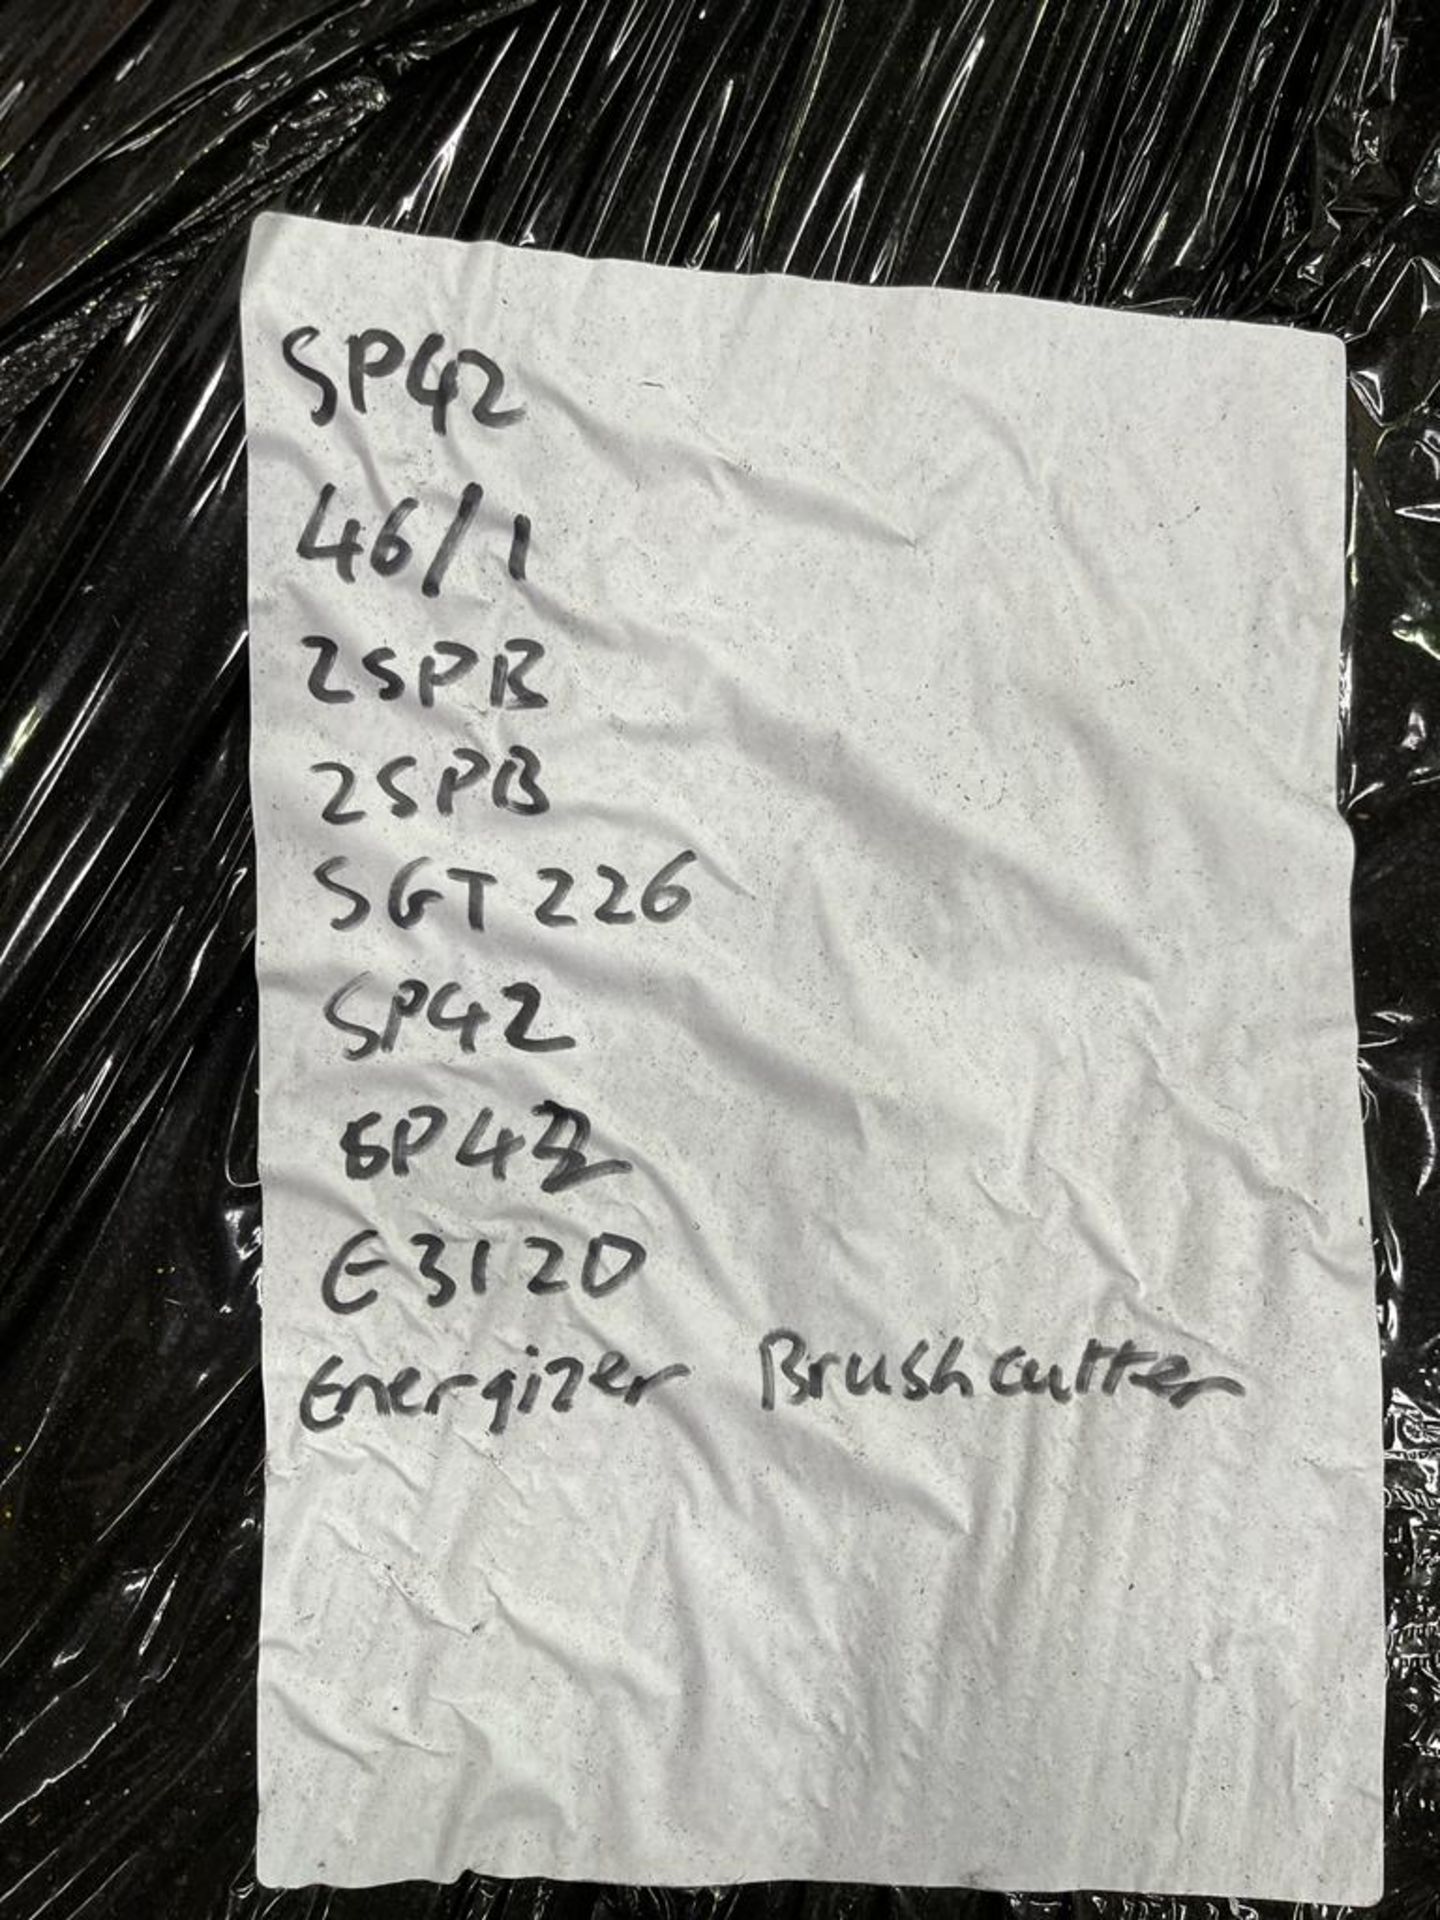 SP42
46/1
2SPB
2SPB
SGT 226
SP42
SP42
E3120
Energizer Brushcutter